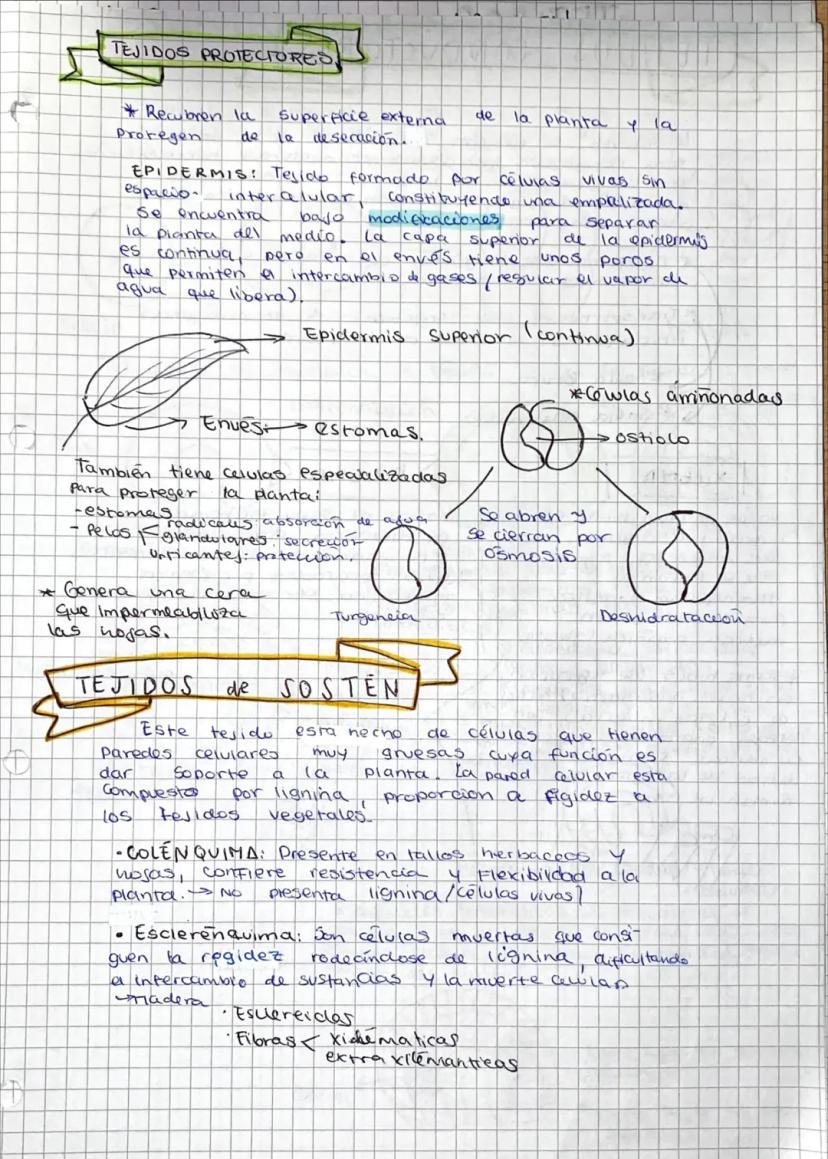 TEJIDOS PROTECTORES
* Recubren la superficie externa de la planta y la
protegen de la desecación.
EPIDERMIS: Tejido formado por células vivas sin
espacio intercelular, constituyendo una empalizada.
Se encuentra bajo modificaciones para separar
la planta del medio. La capa superior de la epidermis
es continua, pero en el envés tiene unos poros
que permiten el intercambio de gases (regular el vapor de
agua que libera).
Epidermis superior (continua)
*Células arriñonadas
Envés → estomas.
ostiolo
También tiene celulas especializadas
para proteger la planta:
-estomas
- Pelos < radicales absorción de agua
glandulares: secreción
urticantes: protección.
Se abren y
se cierran por
ósmosis
* Genera una cera
que impermeabiliza
las hojas.
Turgencia
Deshidratación
TEJIDOS de SOSTÉN
Este tejido esta hecho de células que tienen
paredes celulares muy gruesas cuya función es
dar soporte a la planta. La pared celular esta
compuesta por lignina, proporciona rigidez a
los tejidos vegetales.
·COLÉNQUIMA: Presente en tallos herbaceos y
hojas, confiere resistencia y flexibilidad a la
planta. → No presenta lignina (células vivas)
• Esclerénquima: Son células muertas que consi-
guen la regidez rodeándose de lignina, dificultando
el intercambio de sustancias y la muerte celular
→Madera
· Esclereidas
· Fibras < xilemáticas
extraxilemáticas